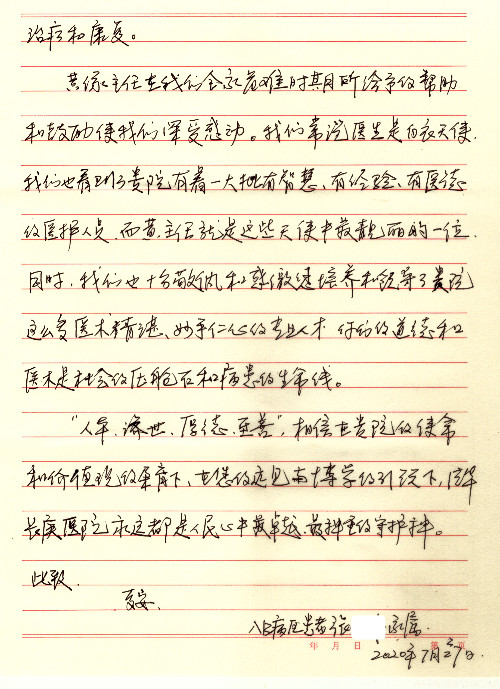 治病和康复。
黄缘主任在我们全家艰难时期所给予的帮助
和鼓励使我们深受感动。我们常说医生是白衣天使,
我们也看到了贵院有着一大批有智慧、有经验、有医德
的医护人员,而黄主任就是这些天使中最靓丽的一位.
同时,我们也十分敬佩和感激培养和领导了贵院
这么多医术精湛、妙手仁心的专业人才 你们的道德和
医术是社会的压舱石和病患的生命线。
“人本、济世、厚德、至善”,相信在贵院的使命
和价值观的荫下、在您的远见和博学的引领下,清华
长庚医院永远都是人民心中最卓越、最神圣的守护神。
此致.
夏安.
八B病区患者张 家属.
年 月 日 第 页
2020年7月27日.